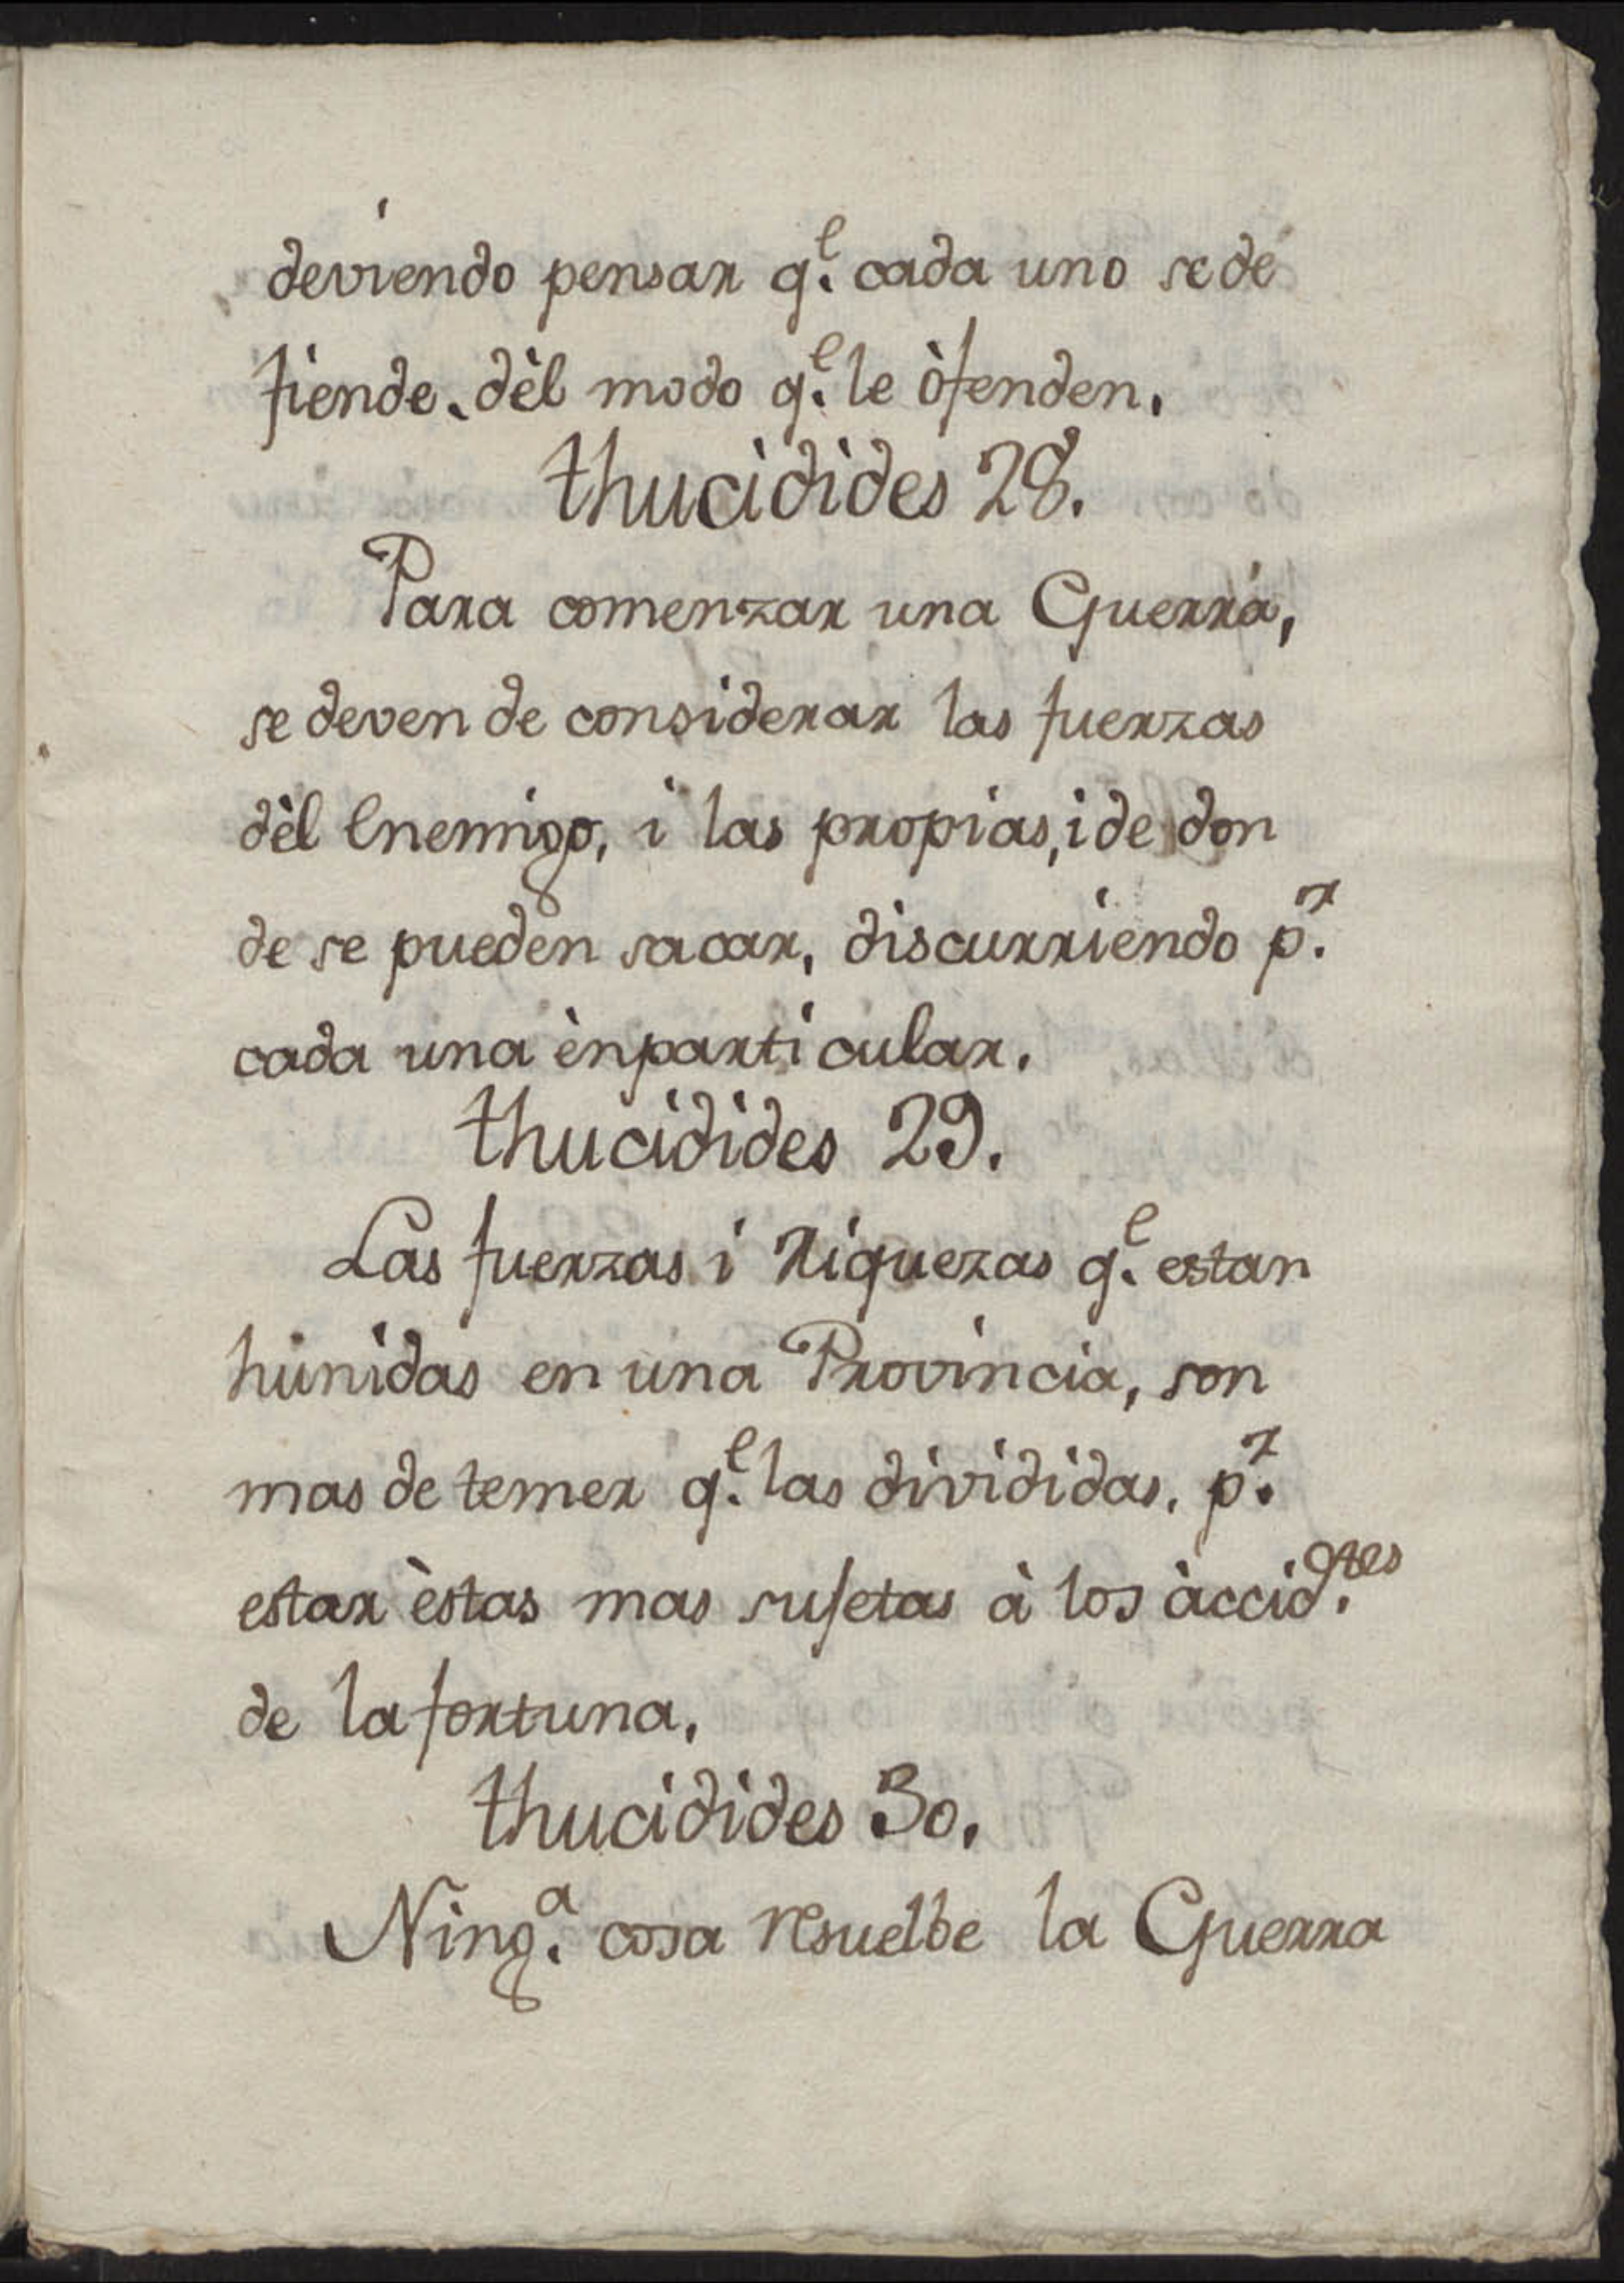 deviendo pensar q.e cada uno se de
fiende, dèl modo q.e le òfenden.
thucidides 28.
Para comenzar una Guerra,
se deven de considerar las fuerzas
dèl Enemigo, i las propias, i de don
de se pueden sacar, discurriendo p.r
cada una èn particular.
thucidides 29.
Las fuerzas i Riquezas q.e estan
hunidas en una Provincia, son
mas de temer q.e las divididas, p.r
estar èstas mas sujetas à los àccid.ntes
de la fortuna.
thucidides 30.
Ning.a cosa resuelbe la Guerra